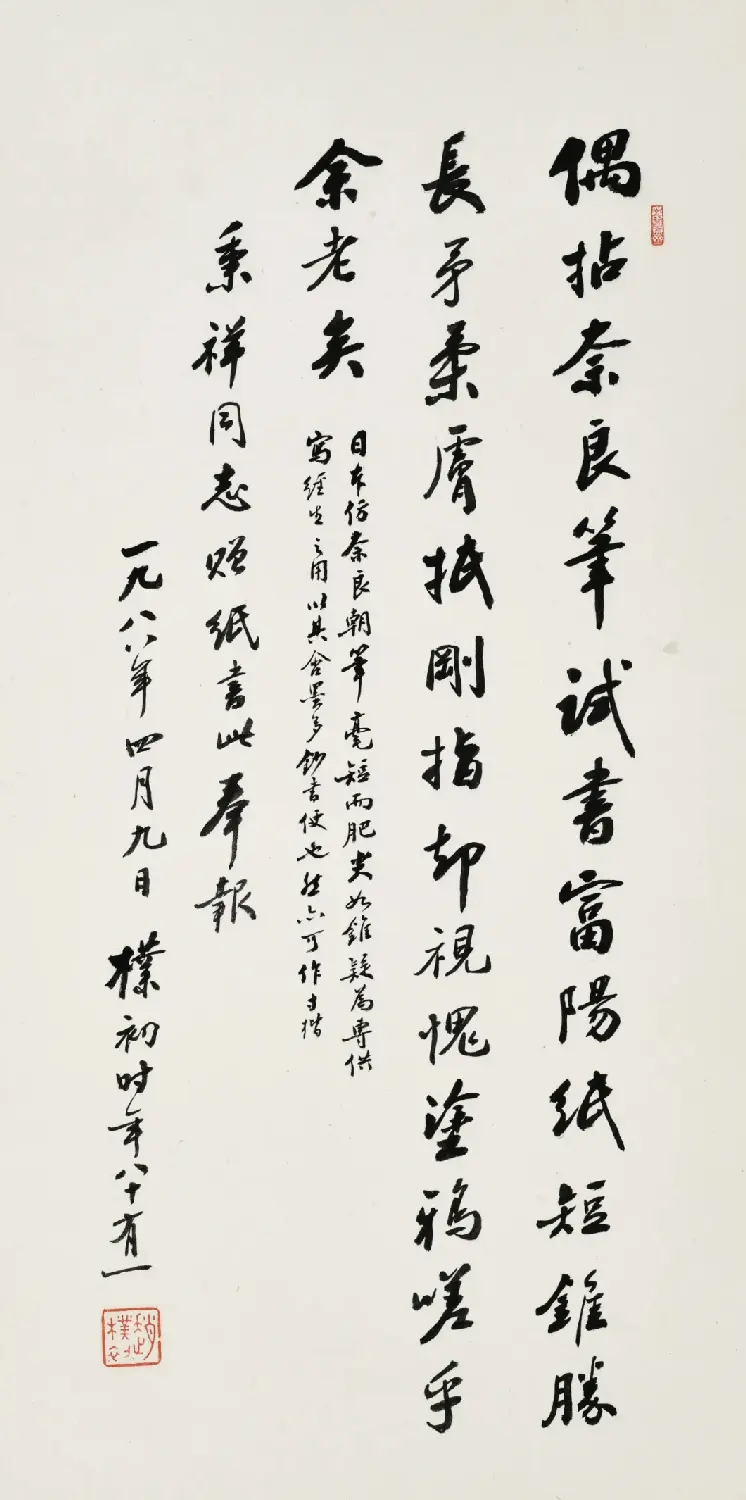 偶拈奈良筆試書富陽紙短錐勝
長矛柔膚抵剛指却視愧塗鴉嗟乎
余老矣
日本仿奈良朝筆毫短而肥类如錐疑為專供
寫經生之用以其含墨多鈔書便也然亦可作寸楷
秉祥同志贈紙書此奉報
一九八八年四月九日 樸初时年八十有一
趙樸初